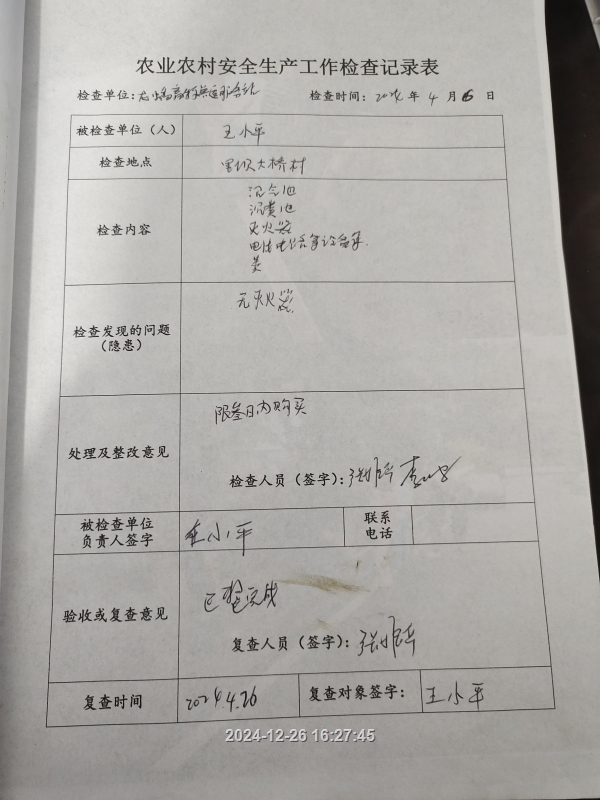 农业农村安全生产工作检查记录表
检查单位: 检查时间: 2024 年 4 月 日
被检查单位（人） 王小平
检查地点 大桥村
检查内容
沉淀池
沉粪池
灭火器
检查发现的问题（隐患）
无灭火器
处理及整改意见
限叁日内购买
检查人员（签字）:
被检查单位负责人签字 王小平 联系电话
验收或复查意见
已整完成
复查人员（签字）:
复查时间 2024.4.26 复查对象签字: 王小平
2024-12-26 16:27:45